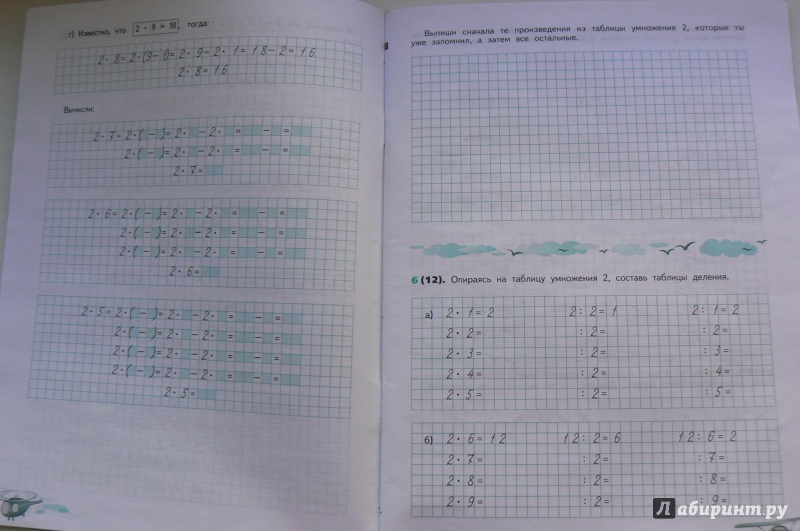 г) Известно, что 2 · 9 = 18, тогда:
2 · 8 = 2 · (9 − 1) = 2 · 9 − 2 · 1 = 18 − 2 = 16
2 · 8 = 16
Вычисли:
2 · 7 = 2 · ( − ) = 2 · − 2 · = − =
2 · ( − ) = 2 · − 2 · = − =
2 · 7 =
2 · 6 = 2 · ( − ) = 2 · − 2 · = − =
2 · ( − ) = 2 · − 2 · = − =
2 · ( − ) = 2 · − 2 · = − =
2 · 6 =
2 · 5 = 2 · ( − ) = 2 · − 2 · = − =
2 · ( − ) = 2 · − 2 · = − =
2 · ( − ) = 2 · − 2 · = − =
2 · ( − ) = 2 · − 2 · = − =
2 · 5 =
8
Выпиши сначала те произведения из таблицы умножения 2, которые ты
уже запомнил, а затем все остальные.
6 (12). Опираясь на таблицу умножения 2, составь таблицы деления.
а) 2 · 1 = 2 2 : 2 = 1 2 : 1 = 2
2 · 2 = : 2 = : 2 =
2 · 3 = : 2 = : 3 =
2 · 4 = : 2 = : 4 =
2 · 5 = : 2 = : 5 =
б) 2 · 6 = 12 12 : 2 = 6 12 : 6 = 2
2 · 7 = : 2 = : 7 =
2 · 8 = : 2 = : 8 =
2 · 9 = : 2 = : 9 =
Лабиринт.ру